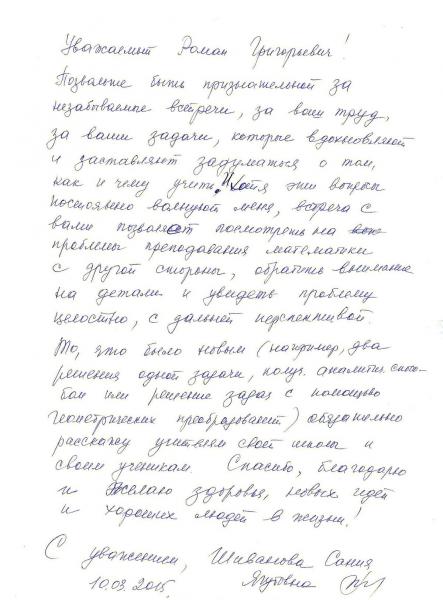 Уважаемый Роман Григорьевич!
Позвольте быть признательной за
незабываемые встречи, за ваш труд,
за ваши задачи, которые вдохновляют
и заставляют задуматься о том,
как и чему учить. И хотя эти вопросы
постоянно волнуют меня, встреча с
вами позволяет посмотреть на
проблемы преподавания математики
с другой стороны, обратить внимание
на детали и увидеть проблему
целостно, с дальней перспективой.
То, что было новым (например, два
решения одной задачи, аналитич. спосо-
бом или решение задач с помощью
геометрических преобразований) обязательно
расскажу учителям своей школы и
своим ученикам. Спасибо, благодарю
и желаю здоровья, новых идей
и хороших людей в жизни!
С уважением, Шиванова Сания
10.03.2015. Ягутовна